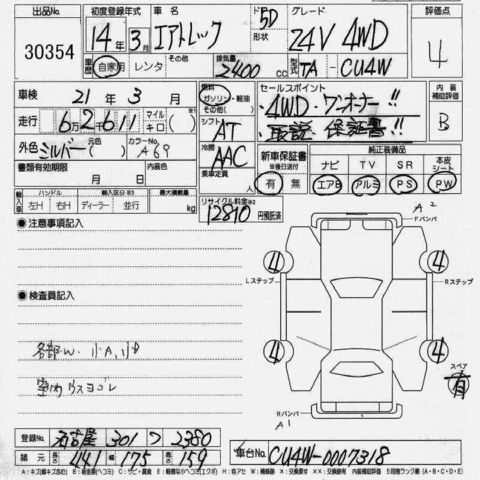 出品No. 30354
初度登録年式 14年 3月
車名 エアトレック
ド 5D 形状
グレード 24V 4WD
評価点 4
車歴 自家用 レンタ その他( )
排気量 2400 CC
型式 TA - CU4W
車検 21年 3月
燃料 ガソリン・軽油 その他( )
セールスポイント
・4WD・ワンオーナー!!
・取説・保証書!!
内装補助評価 B
走行 6万2611 マイル キロ ( )
シフト AT
外色 シルバー 元色( ) カラーNo. A69
冷房 AAC
新車保証書 ※後日送付 有 無
純正装備品
ナビ TV SR 本皮シート
エアB アルミ PS PW
書類有効期限 月 日
内装色
乗車定員 人
輸入車 ハンドル 輸入区分※3 最大積載量
左H 右H ディーラー 並行 kg
リサイクル料金※2 12810 円預託済
◉注意事項記入
A2
Fバンパ
4 4
Lステップ Rステップ
◉検査員記入
各部W・小A,小B
室内ウスヨゴレ
4 4
スペア 有
Rバンパ
A1
登録No. 名古屋 301 つ 2380
諸元 長さ 441 幅 175 高さ 159
車台No. CU4W-0007318
A:キズ(線キズ含む)